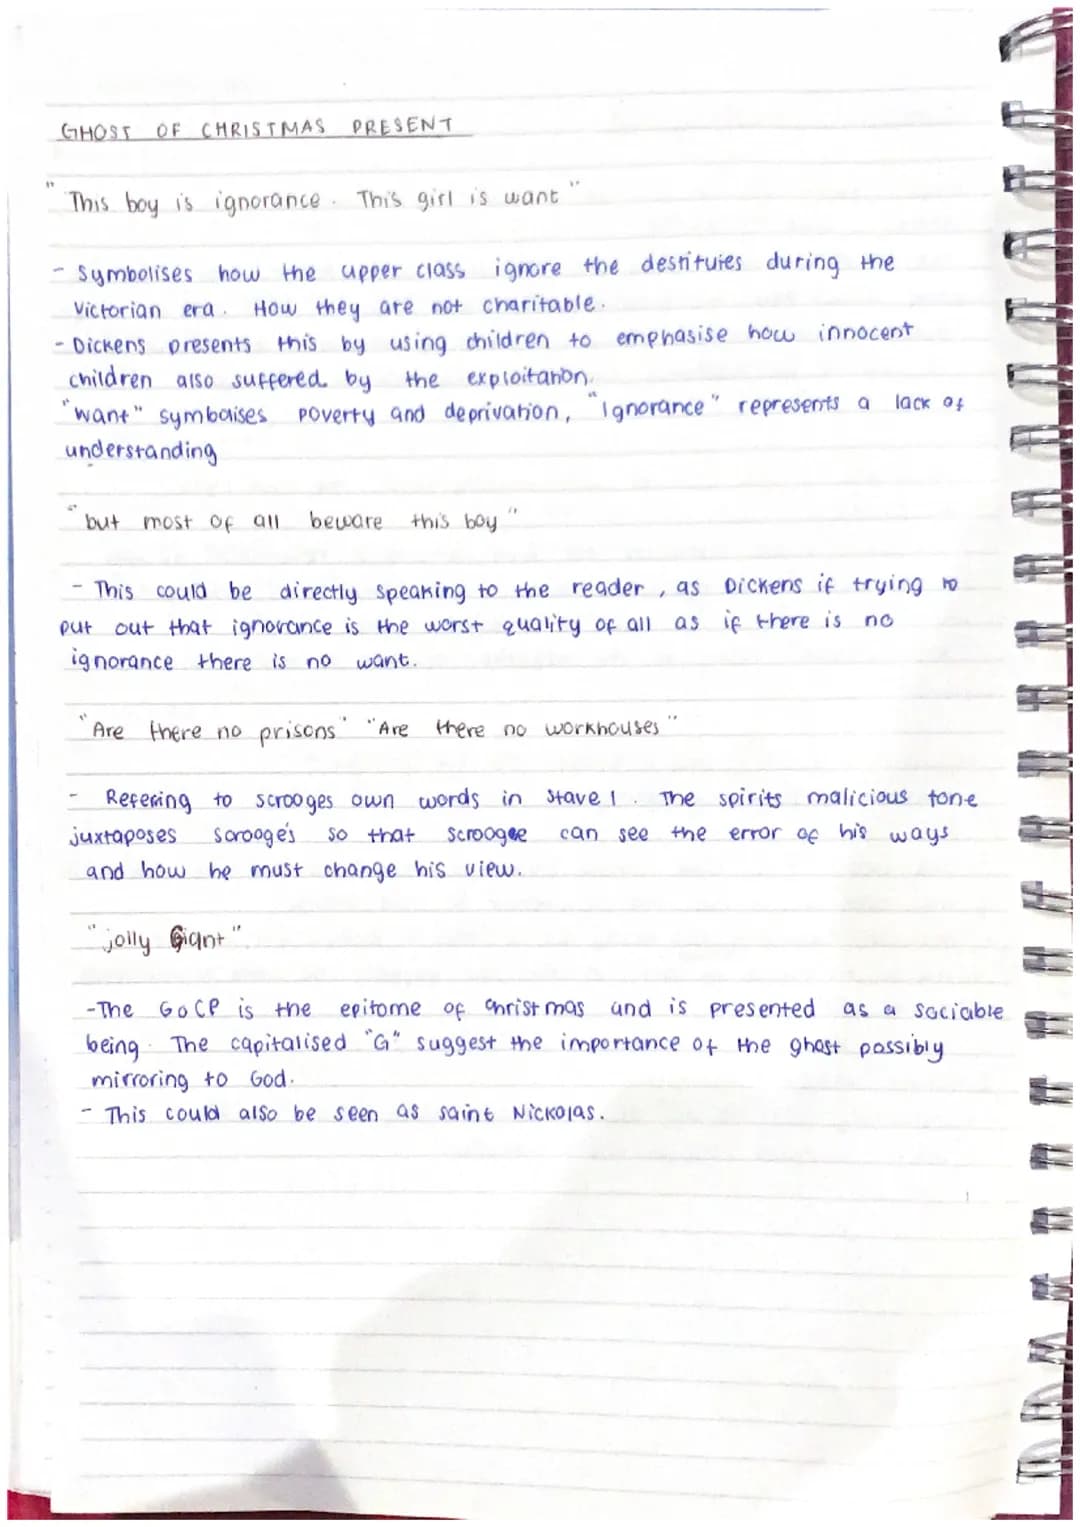 GHOST OF CHRISTMAS PRESENT
"This boy is ignorance. This girl is want"
- Symbolises how the upper class ignore the destituies during the
Victorian era. How they are not charitable.
- Dickens presents this by using children to emphasise how innocent
children also suffered by the exploitation.
"want" symbolises poverty and deprivation, "Ignorance" represents a lack of
understanding
"but most of all beware this boy"
- This could be directly speaking to the reader, as Dickens if trying to
put out that ignorance is the worst quality of all as if there is no
ignorance there is no want.
"Are there no prisons" "Are there no workhouses"
- Refering to scrooges own words in stave 1. The spirits malicious tone
juxtaposes Scrooge's so that Scroogee can see the error of his ways
and how he must change his view.
"jolly Giant".
-The GoCP is the epitome of Christmas and is presented as a sociable
being. The capitalised "G" suggest the importance of the ghost possibly
mirroring to God.
- This could also be seen as saint Nickolas.